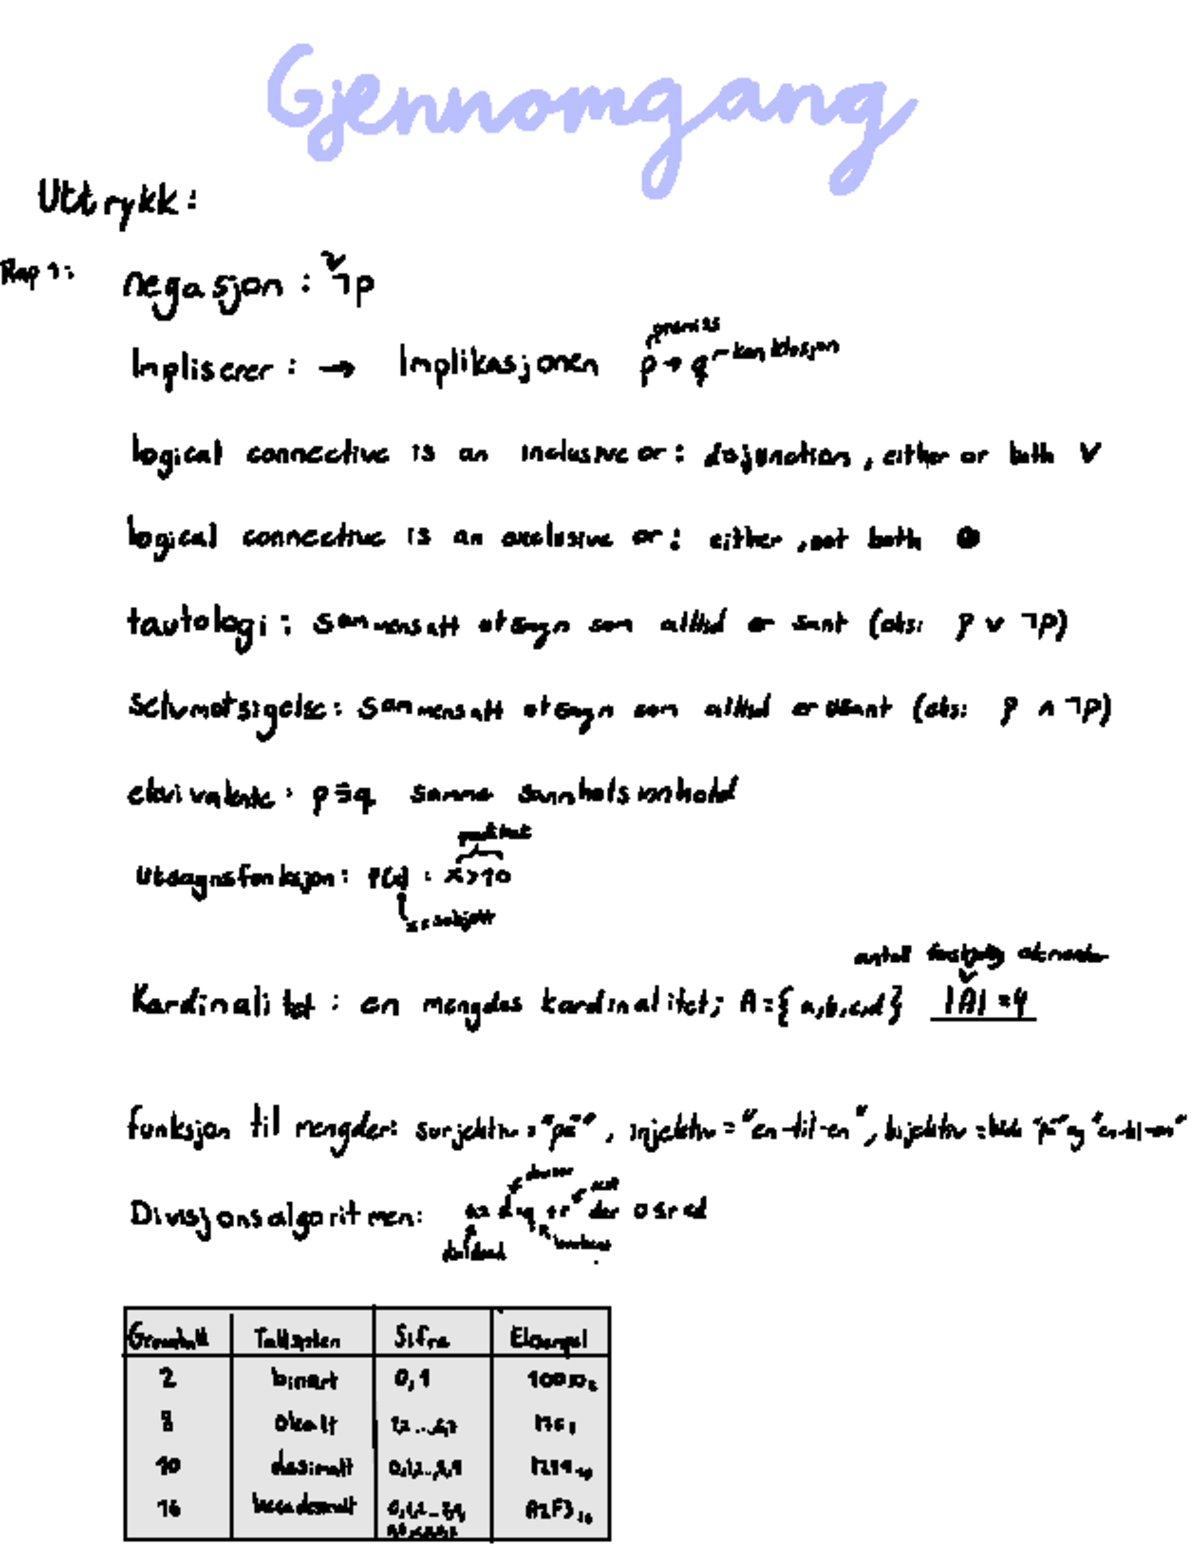 Gjennomgang
Uttrykk:
Kap 1: negasjon: ¬p
premiss
Impliserer: → Implikasjonen p → q konklusjon
logical connective is an inclusive or: disjunction, either or both ∨
logical connective is an exclusive or: either, not both ⊕
tautologi: sammensatt utsagn som alltid er sant (eks: p ∨ ¬p)
selvmotsigelse: sammensatt utsagn som alltid er usant (eks: p ∧ ¬p)
ekvivalente: p≡q samme sannhetsinnhold
predikat
Utsagnsfunksjon: P(x) : x>10
x = subjekt
antall forskjellig elementer
Kardinalitet: en mengdes kardinalitet; A={a,b,c,d} |A| = 4
funksjon til mengder: surjektiv = "på", injektiv = "en-til-en", bijektiv = både "på" og "en-til-en"
divisor rest
Divisjonsalgoritmen: a = d·q + r der 0≤r<d
dividend kvotient
Grunntall Tallsystem Sifre Eksempel
2 binært 0,1 10010₂
8 Oktalt 1,2...6,7 176₈
10 desimalt 0,1,2...8,9 1299₁₀
16 heksadesimalt 0,1,2...8,9, A2F3₁₆